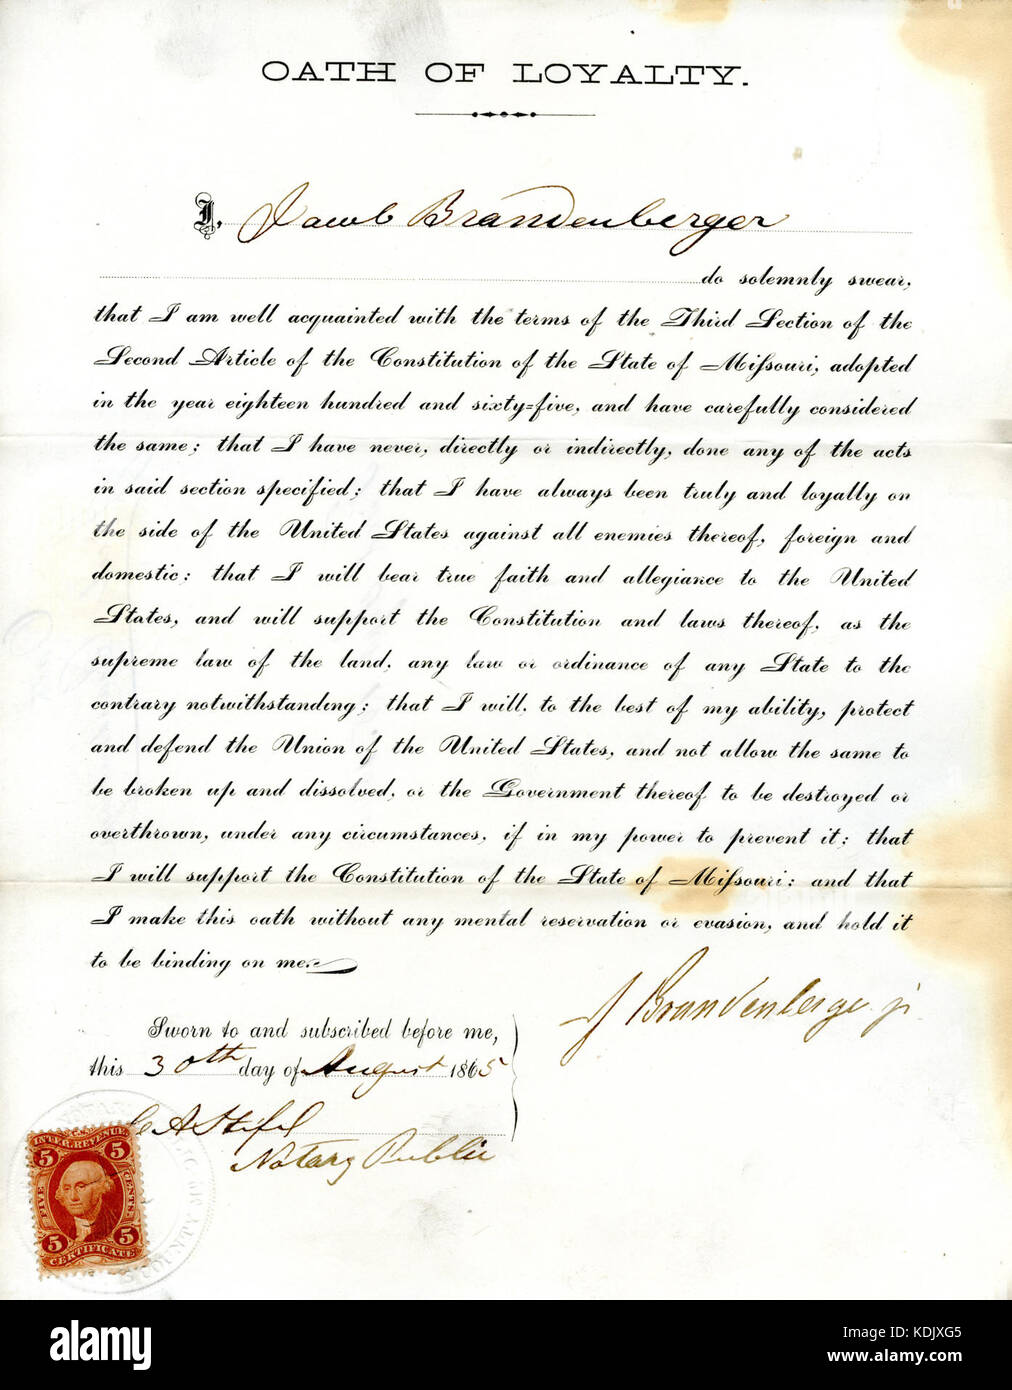 OATH OF LOYALTY.
I, Jacob Brandenberger
do solemnly swear,
that I am well acquainted with the terms of the Third Section of the
Second Article of the Constitution of the State of Missouri, adopted
in the year eighteen hundred and sixty=five, and have carefully considered
the same; that I have never, directly or indirectly, done any of the acts
in said section specified; that I have always been truly and loyally on
the side of the United States against all enemies thereof, foreign and
domestic: that I will bear true faith and allegiance to the United
States, and will support the Constitution and laws thereof, as the
supreme law of the land, any law or ordinance of any State to the
contrary notwithstanding; that I will, to the best of my ability, protect
and defend the Union of the United States, and not allow the same to
be broken up and dissolved, or the Government thereof to be destroyed or
overthrown, under any circumstances, if in my power to prevent it; that
I will support the Constitution of the State of Missouri: and that
I make this oath without any mental reservation or evasion, and hold it
to be binding on me.
J Brandenberger jr
Sworn to and subscribed before me,
this 30th day of August 1865
C A Stifel
Notary Public
INTER. REVENUE
5 5
FIVE CENTS.
5 5
CERTIFICATE
COUNTY
alamy
a
alamy
a
a
alamy
Image ID: KDJXG5
www.alamy.com